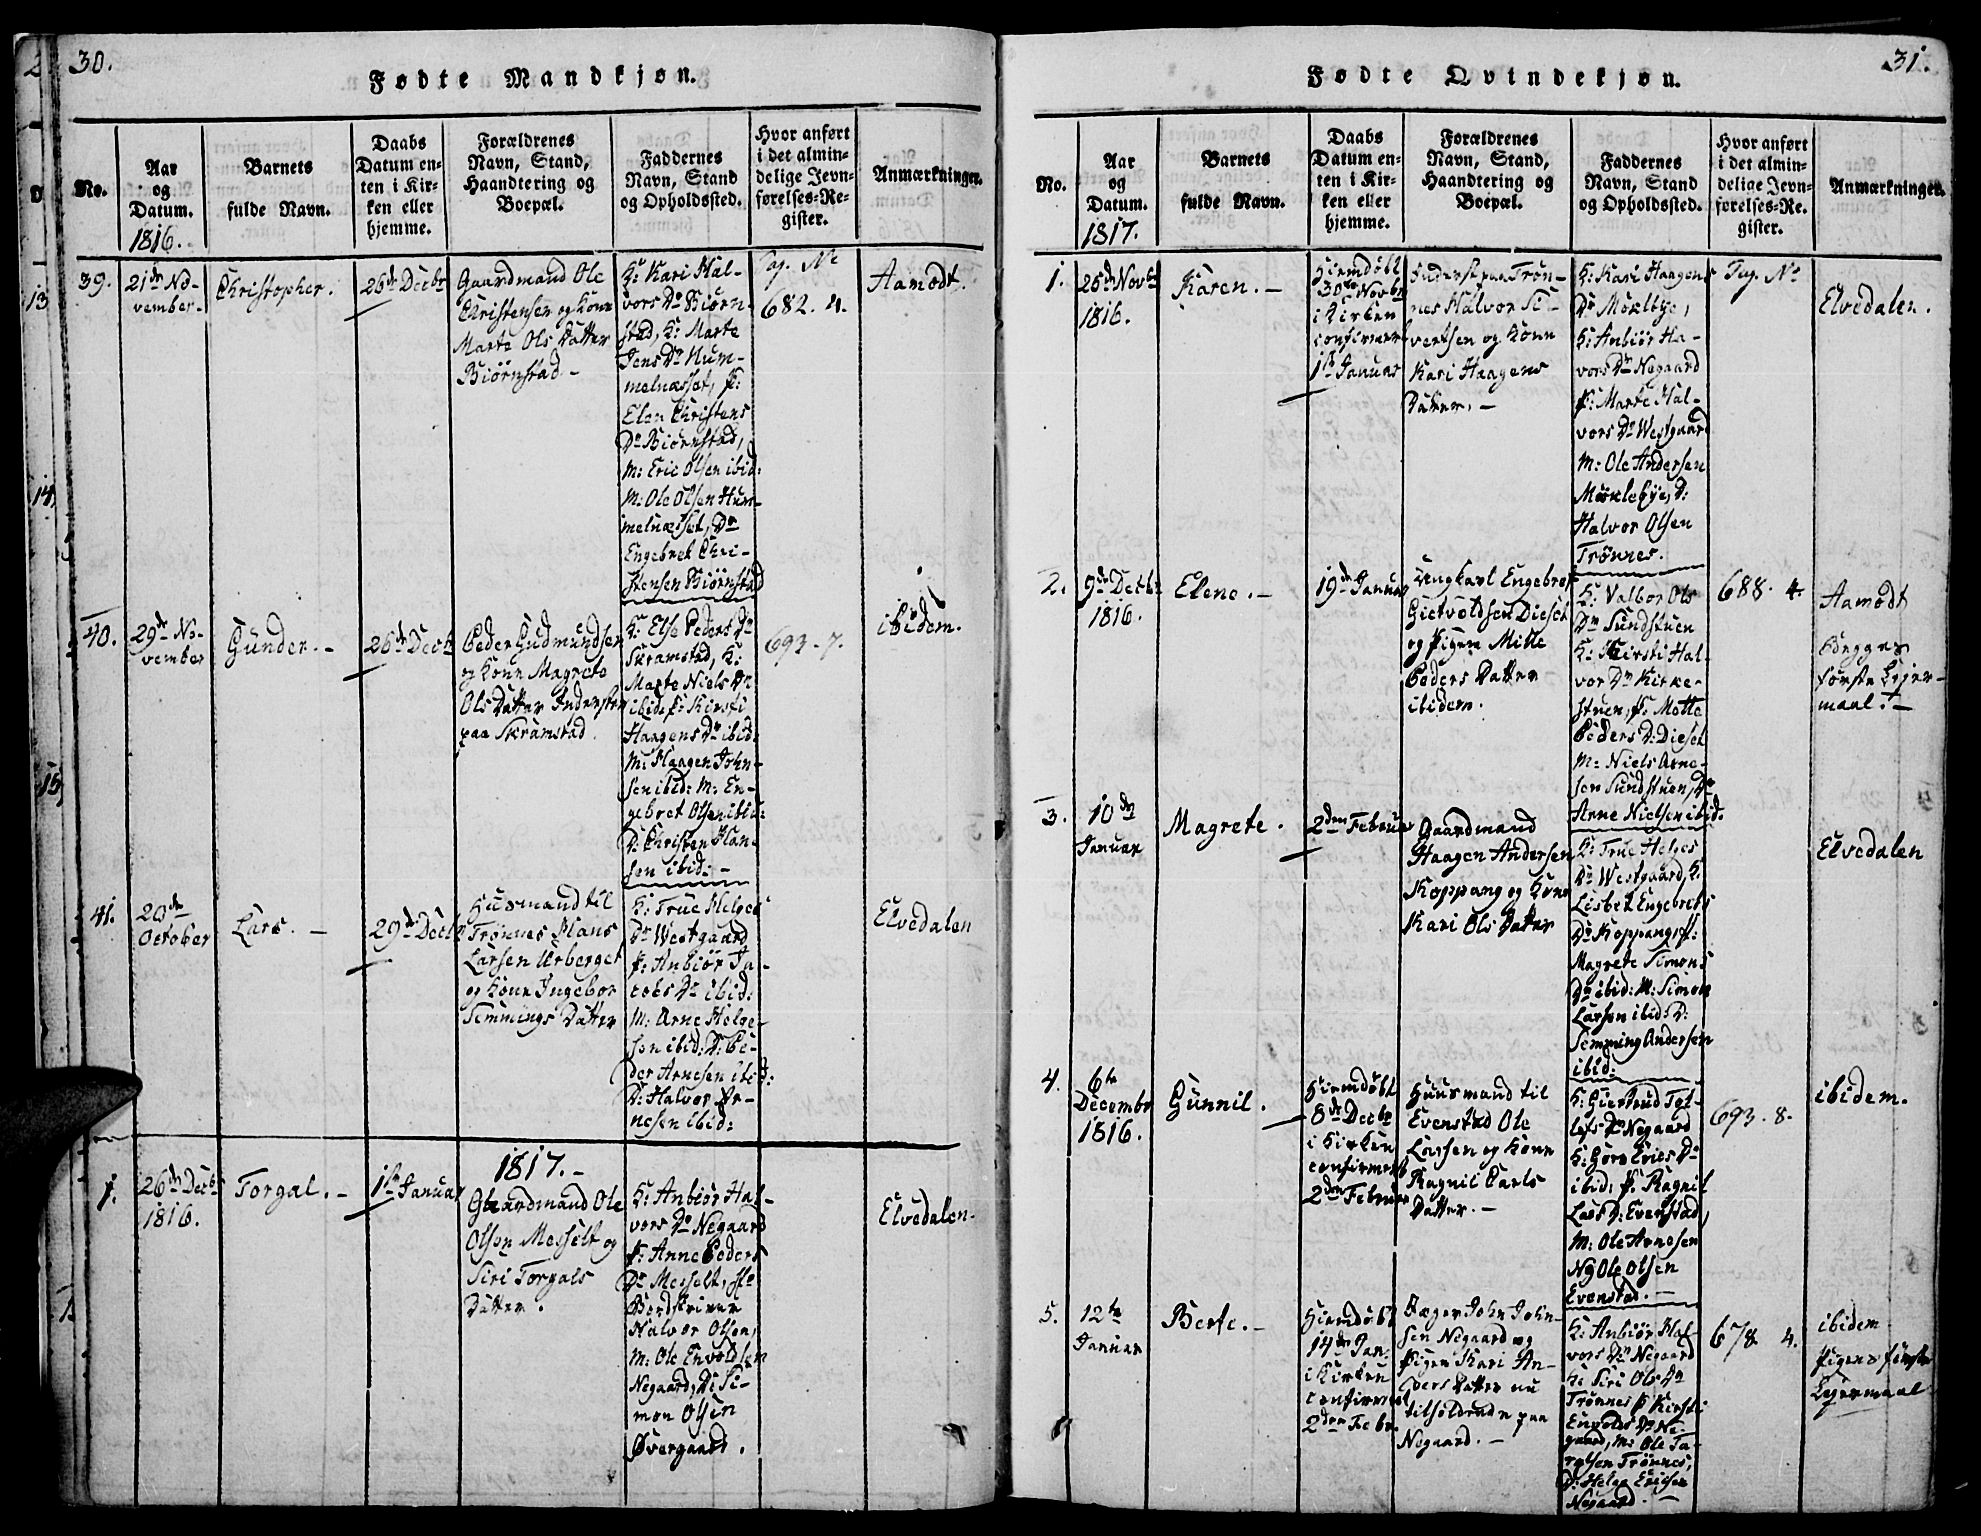 30.
Fødte Mandkjøn.
No.
Aar
og
Datum.
1816.
Barnets
fulde Navn.
Daabs
Datum en-
ten i Kir-
ken eller
hjemme.
Forældrenes
Navn, Stand,
Haandtering og
Boepæl.
Faddernes
Navn, Stand
og Opholdssted.
Hvor anført
i det almin-
delige Jevn-
førelses-Re-
gister.
Anmærkninger.
39.
21de No-
vember.
Christopher.
26de Decbr
Gaardmand Ole
Christensen og Kone
Marte Ols Datter
Biörnstad -
K: Kari Hal-
vors Dr Biörn-
stad, K: Marte
Jens Dr Hum-
melnæsset, P:
Elen Christens
Dr Biörnstad,
M: Eric Olsen ibid:
M: Ole Olsen Hum-
melnæsset, Dr
Engebret Chri-
stensen Biörnstad
Pag. No
682. 4.
Aamodt.
40.
29de No-
vember
Gunder. -
26de Decbr
Peder Gudmundsen
og Kone Magrete
Ols Datter Inderster
paa Skramstad.
K: Else Peders Dr
Skramstad, K:
Marte Niels Dr
ibid: P: Kirsti
Haagens Dr ibid:
M: Haagen John-
sen ibid: M: En-
gebret Olsen ibid:
D: Christen Han-
sen ibid: -
693. 7.
ibidem.
41.
20de
October
Lars. -
29de Decbr
Huusmand til
Trönnes Hans
Larsen Urberget
og Kone Ingebor
Semmings Datter
K: True Helges
Dr Westgaard
P: Anbiör Ja-
cobs Dr ibid:
M: Arne Helge-
sen ibid: D: Pe-
der Arnesen ibid:
D: Halvor Ar-
nesen ibid:
Elvedalen
1817. -
1.
26de Decbr
1816.
Torgal. -
1ste Januar
Gaardmand Ole
Olsen Messelt og
Siri Torgals
Datter.
K: Anbiör Hal-
vors Dr Negaard
P: Anne Peders
Dr Messelt,
Bordskriver
Halvor Olsen,
M: Ole Envoldsen
Negaard, D: Si-
mon Olsen
Övergaard.
Elvedalen.
31.
Fødte Qvindekjøn.
No.
Aar
og
Datum.
1817.
Barnets
fulde Navn.
Daabs
Datum en-
ten i Kir-
ken eller
hjemme.
Forældrenes
Navn, Stand,
Haandtering og
Boepæl.
Faddernes
Navn, Stand
og Opholdssted.
Hvor anført
i det almin-
delige Jevn-
førelses-Re-
gister.
Anmærkninger.
1.
25de Novbr
1816.
Karen. -
Hiemdöbt
30te Novbr
i Kirken
confirmert
1ste Januar
Inderst paa Trön-
nes Halvor Si-
vertsen og Kone
Kari Haagens
Datter. -
K: Kari Haagens
Dr Möklebye,
K: Anbiör Ha-
vors Dr Negaard
P: Marte Hal-
vors Dr Westgaard
M: Ole Andersen
Möklebye, D:
Halvor Olsen
Trönnes.
Pag. No
Elvedalen.
2.
9de Decbr
1816.
Elene. -
19de Januar
Ungkarl Engebret
Gietvoldsen Dieset
og Pigen Mille
Peders Datter
ibidem.
K: Valbor Ols
Dr Sundstuen
K: Kirsti Hal-
vor Dr Kirke-
stuen, P: Mette
Peders D: Dieset
M: Niels Arne-
sen Sundstuen, Dr
Arne Nielsen ibid.
688. 4.
Aamodt
begges
förste Leier-
maal. -
3.
10de
Januar
Magrete.
2den Februar
Gaardmand
Haagen Andersen
Koppang og Kone
Kari Ols Datter
K: True Helges
Dr Westgaard, K.
Lisbet Engebrets
Dr Koppang, P:
Magrete Simons
Dr ibid: M: Simon
Larsen ibid: D:
Semming Andersen
ibid:
Elvedalen
4.
6te
Decembr
1816.
Gunnil.
Hiemdöbt
8de Decbr
i Kirken
confirmert
2den Februar
Huusmand til
Evenstad Ole
Larsen og Kone
Ragnil Carls
Datter. -
K: Giertrud Tol-
lefs Dr Negaard
K: Goro Erics Dr
ibid: P: Ragnil
Lars D: Evenstad,
M: Ole Arnesen
Ng Ole Olsen
Evenstad. -
693. 8.
ibidem.
5.
12te
Januar
Berte. -
Hiemdöbt
14de Jan.
i Kirken
confirmert
2den Febr.
Jæger John John-
sen Negaard og
Pigen Kari An-
ders Datter nu
tilholdende paa
Negaard. -
K: Anbiör Hal-
vors Dr Negaard
K: Siri Ols Dr
Trönnes P: Kirsti
Envolds Dr Ne-
gaard, M: Ole Ta-
ralsen Trönnes,
D: Helge Ericsen
Negaard. -
678 4.
ibidem
Pigens förste
Leiermaal